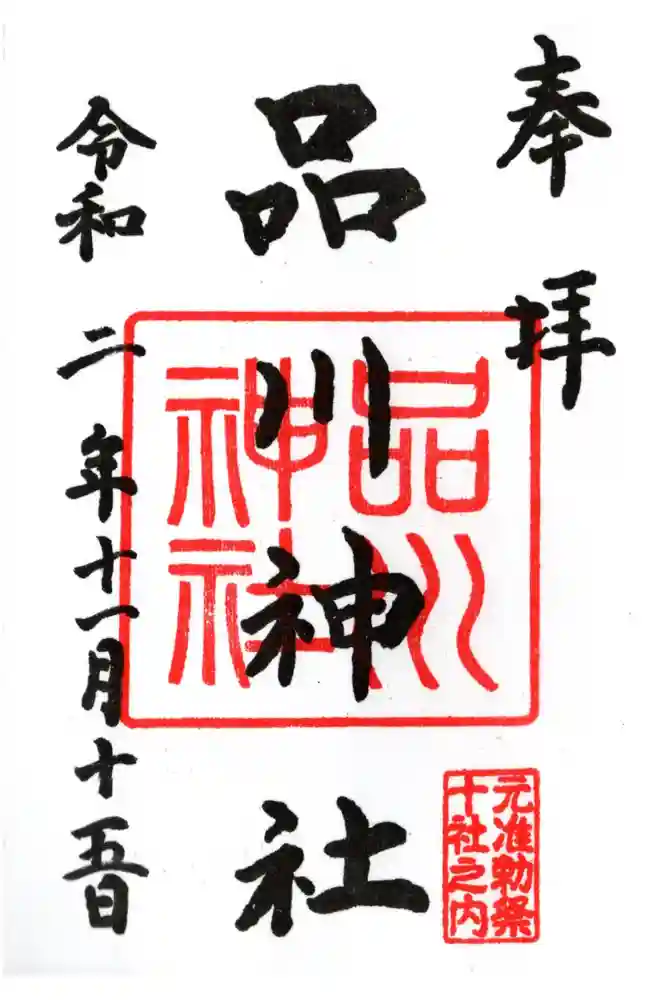 奉拝
品川神社
令和二年十一月十五日
品川神社
元准勅祭
十社之内